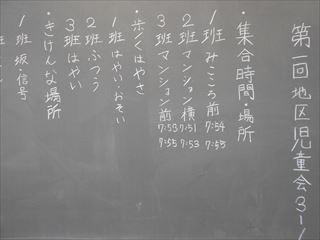 第一回地区児童会3-1
・集合時間・場所
1班 みこころ前 7:54 7:55
2班 マンション横 7:51 7:53
3班 マンション前 7:53 7:55
・歩くはやさ
1班 はやい・おそい
2班 ふつう
3班 はやい
・きけんな場所
1班 坂 信号